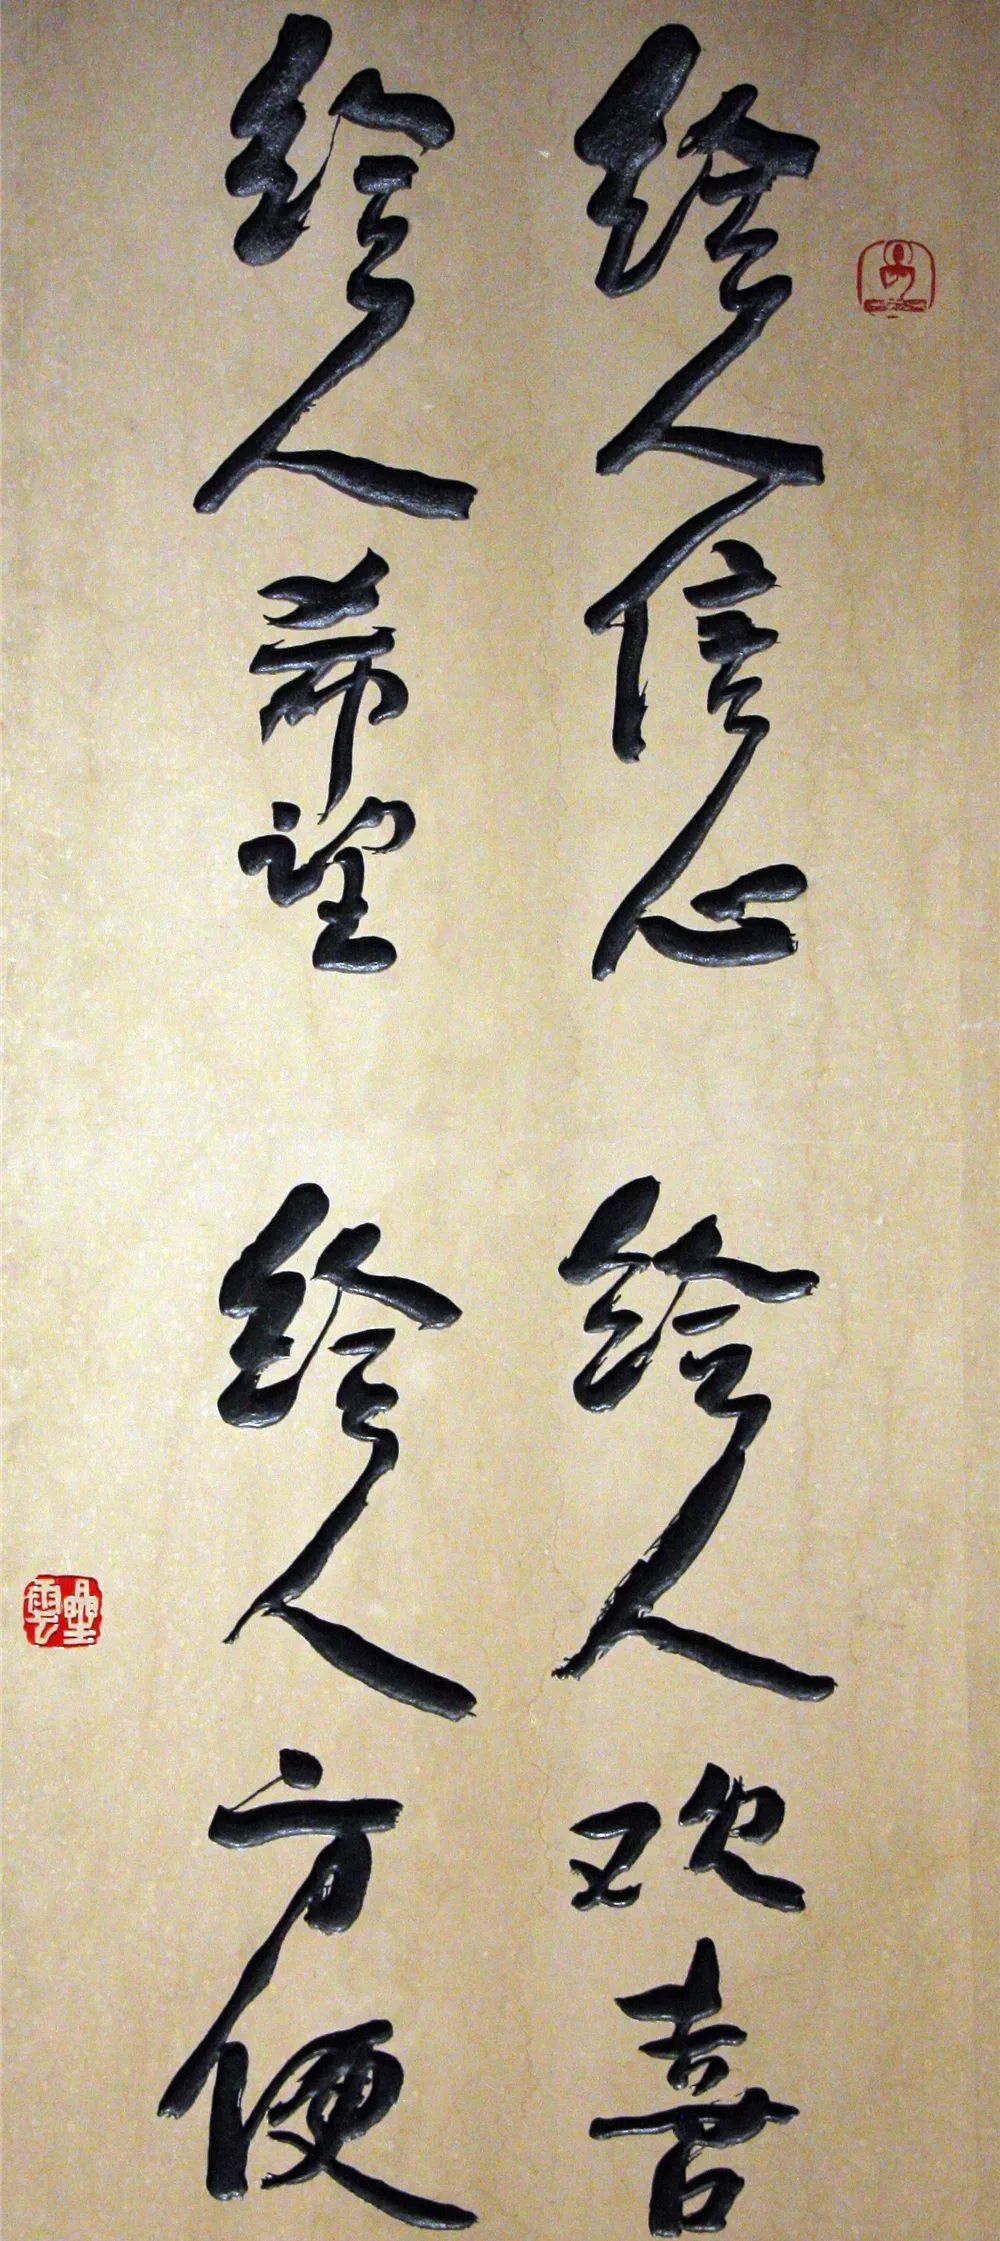 给人信心 给人欢喜
给人希望 给人方便
星雲